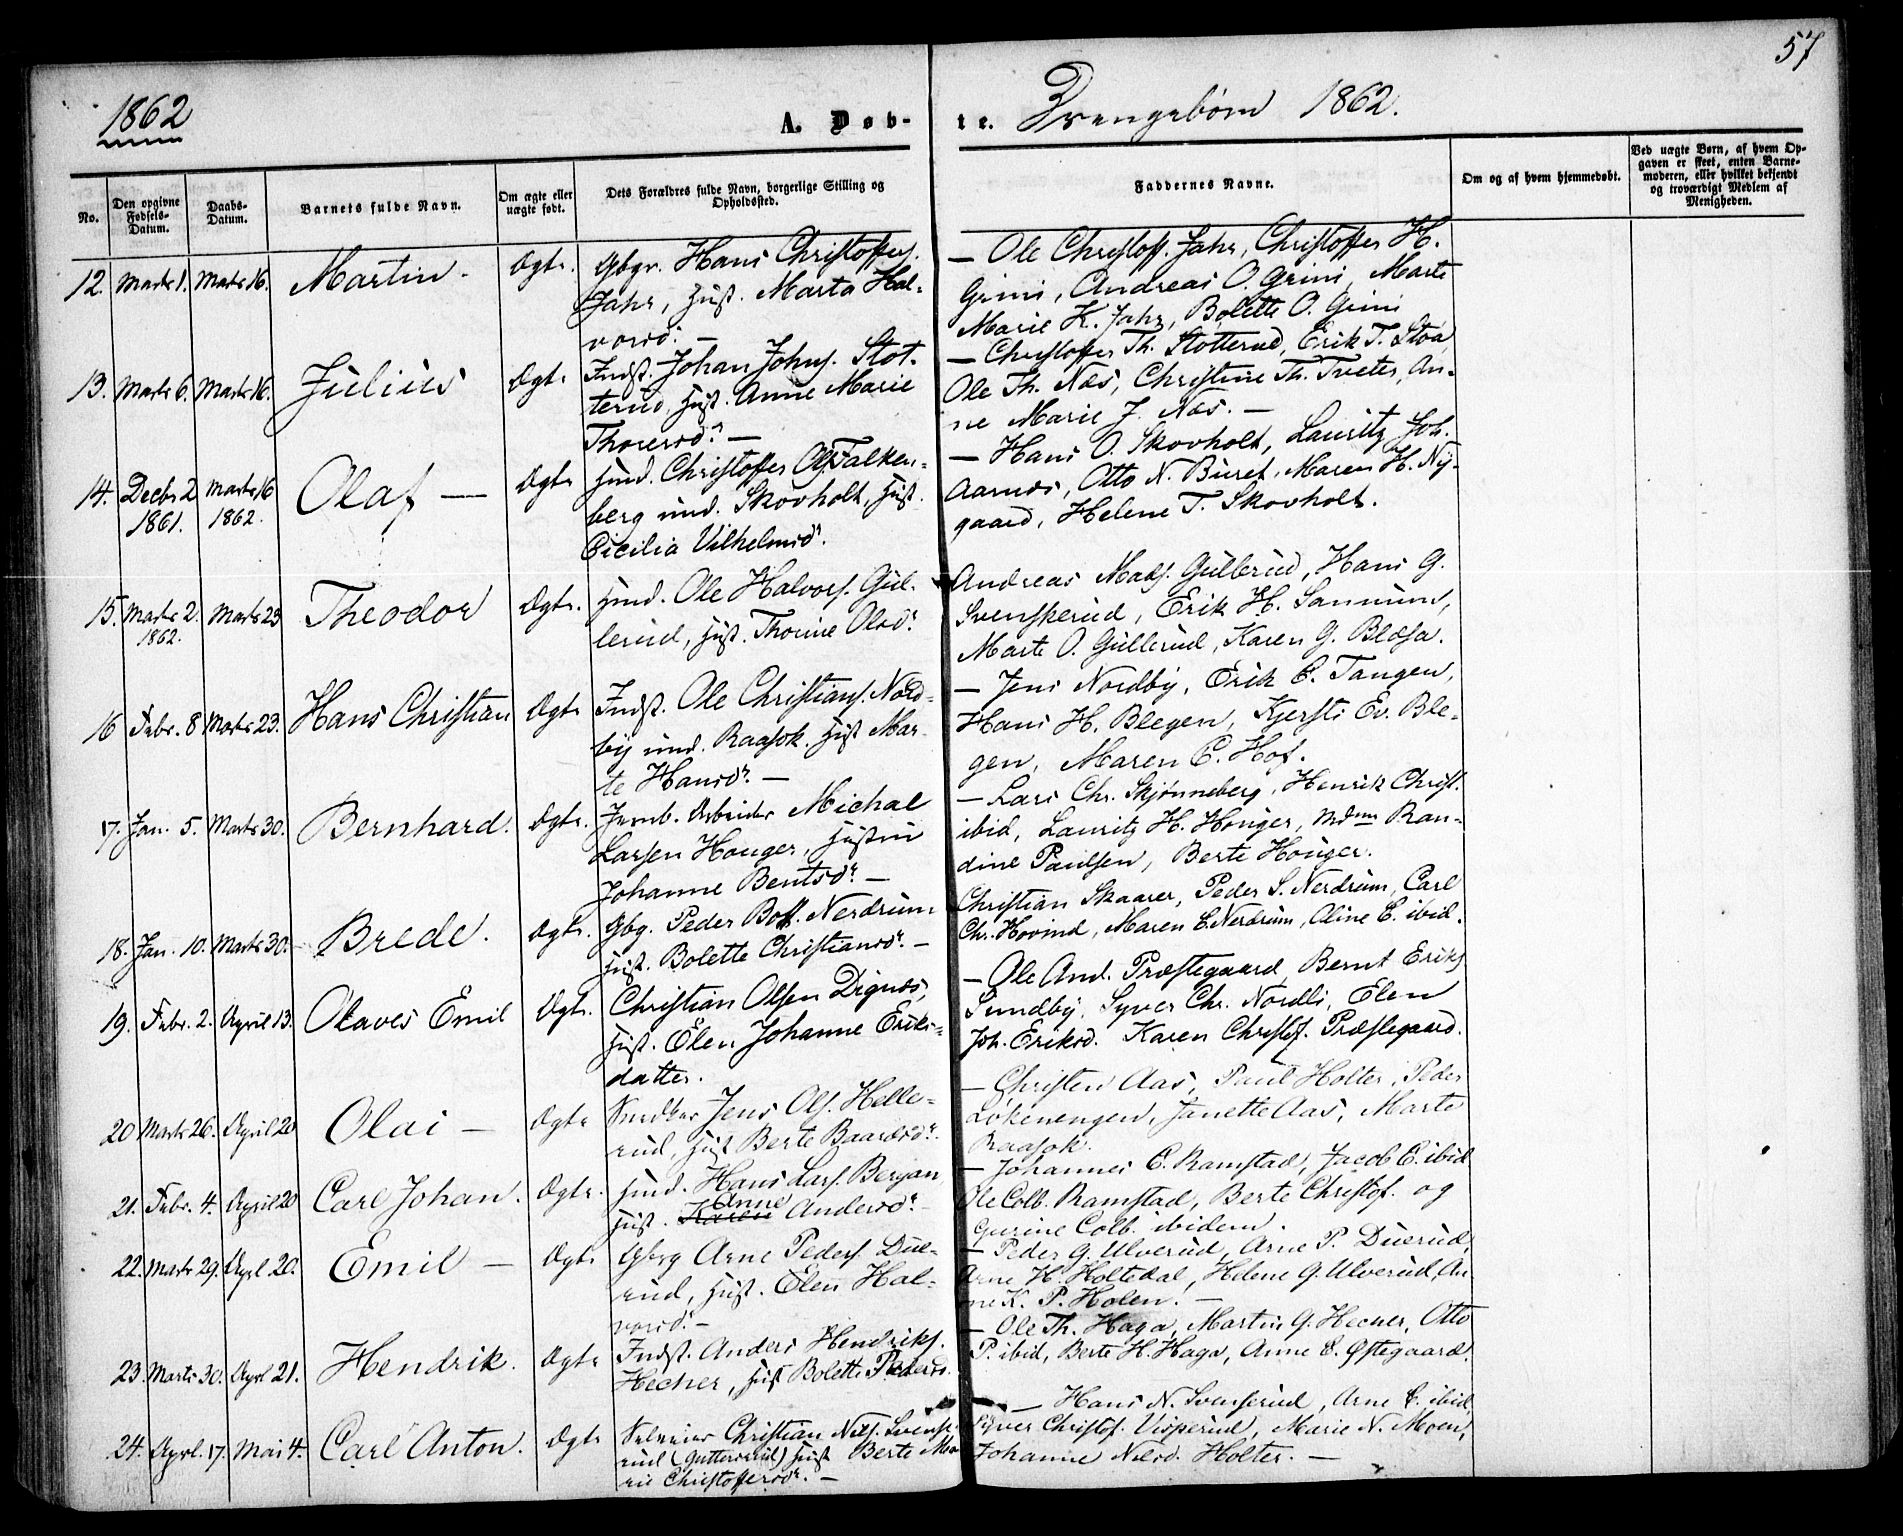 57
1862
A. Døb-
te. Drengebørn 1862.
No.
Den opgivne Fødsels-Datum.
Daabs-Datum.
Barnets fulde Navn.
Om ægte eller uægte født.
Dets Forældres fulde Navn, borgerlige Stilling og Opholdssted.
Faddernes Navne.
Om og af hvem hjemmedøbt.
Ved uægte Børn, af hvem Opgaven er skeet, enten Barnemoderen, eller hvilket bekjendt og troværdigt Medlem af Menigheden.
12. Marts 1. Marts 16. Martin. Ægte. Gbgr. Hans Christoffers.
Jahr, Hust. Marta Hal-
vorsd. —
— Ole Christoff. Jahr, Christoffer H.
Grini, Andreas O. Grini, Marte
Marie K. Jahr, Bolette O. Grini
13. Marts 6. Marts 16. Julius Ægte Indst. Johan Johns. Slot-
terud, Hust. Anne Marie
Thoresd. —
— Christoffer Th. Slotterud, Erik T. Stoa
Ole Th. Næs, Christine Th. Tveter, An-
ne Marie J. Næs. —
14. Decbr 2 1861. Marts 16 1862. Olaf — Ægte Husm. Christoffer Ols. Falken-
berg und. Skovholt, Hust.
Cicilia Vilhelmsd.
— Hans O. Skovholt, Lauritz Joh.
Aarnæs, Otto N. Buret, Maren H. Ny-
gaard, Helene T. Skovholt.
15. Marts 2. 1862. Marts 23 Theodor Ægte. Husm. Ole Halvors. Gul-
lerud, Hust. Thorine Olsd.
Andreas Mads. Gullerud, Hans G.
Svenskerud, Erik H. Sannum,
Marte O. Gullerud, Karen G. Blæsa.
16 Febr. 8 Marts 23. Hans Christian Ægte Indst. Ole Christians. Nord-
by und. Raasok. Hust Mar-
te Hansd. —
— Jens Nordby, Erik C. Tangen,
Hans H. Blegen, Kjersti Ev. Ble-
gen, Maren C. Hof.
17. Jan. 5. Marts 30. Bernhard. Ægte. Jernb. Arbeider Michal
Larsen Houger, Hustru
Johanne Bentsd. —
— Lars Chr. Skjønneberg, Henrik Christ.
ibid, Lauritz H. Houger, Mdm Ran-
dine Paulsen, Berte Houger.
18. Jan. 10. Marts 30. Brede. Ægte. Gbg. Peder Bott. Nerdrum
Hust. Bolette Christiansd. —
Christian Skaarer, Peder S. Nerdrum, Carl
Chr. Hovind, Maren E. Nerdrum, Oline E. ibid.
19. Febr. 2. April 13. Olaves Emil Ægte. Christian Olsen Dignæs,
Hust. Elen Johanne Eriks-
datter.
— Ole And. Præstegaard, Bernt Eriks
Sundby, Syver Chr. Nordli, Elen
Joh. Eriksd. Karen Christof. Præstegaard.
20 Marts 26. April 20 Olai — Ægte Snedker Jens Ols. Helle-
rud, Hust Berte Baardsd.
— Christen Aas, Paul Holter, Peder
Løkenengen, Janette Aas, Marte
Raasok.
21. Febr. 4. April 20 Carl Johan. Ægte. Husm. Hans Lars. Berjan
Hust. Karen Anne Andersd. —
— Johannes C. Ramstad, Jacob C. ibid
Ole Colb. Ramstad, Berte Christof. og
Gurine Colb. ibidem.
22. Marts 29. Apl 20. Emil — Ægte Gbrg Arne Peders. Due-
rud, Hust. Elen Hal-
vorsd. —
— Peder G. Ulverud, Arne P. Duerud,
Arne H. Holtedal, Helene G. Ulverud, An-
ne K. P. Holen. —
23. Marts 30. Apl 21. Hendrik. Ægte Indst. Anders Hendriks.
Hecher, Hust Bolette Pedersd.
— Ole Th. Haga, Martin G. Hecher, Otto
P. ibid, Berte H. Haga, Anne E. Østegaard.
24. Aprl. 17. Mai 4. Carl Anton. Ægte Christian Nils. Svense-
rud (Guttersrud) Hust Berte Ma-
rie Christoffersd. —
— Hans N. Svenserud, Arne C. ibid
Syver Christof. Visperud, Marie N. Moen,
Johanne Nilsd. Holter. —